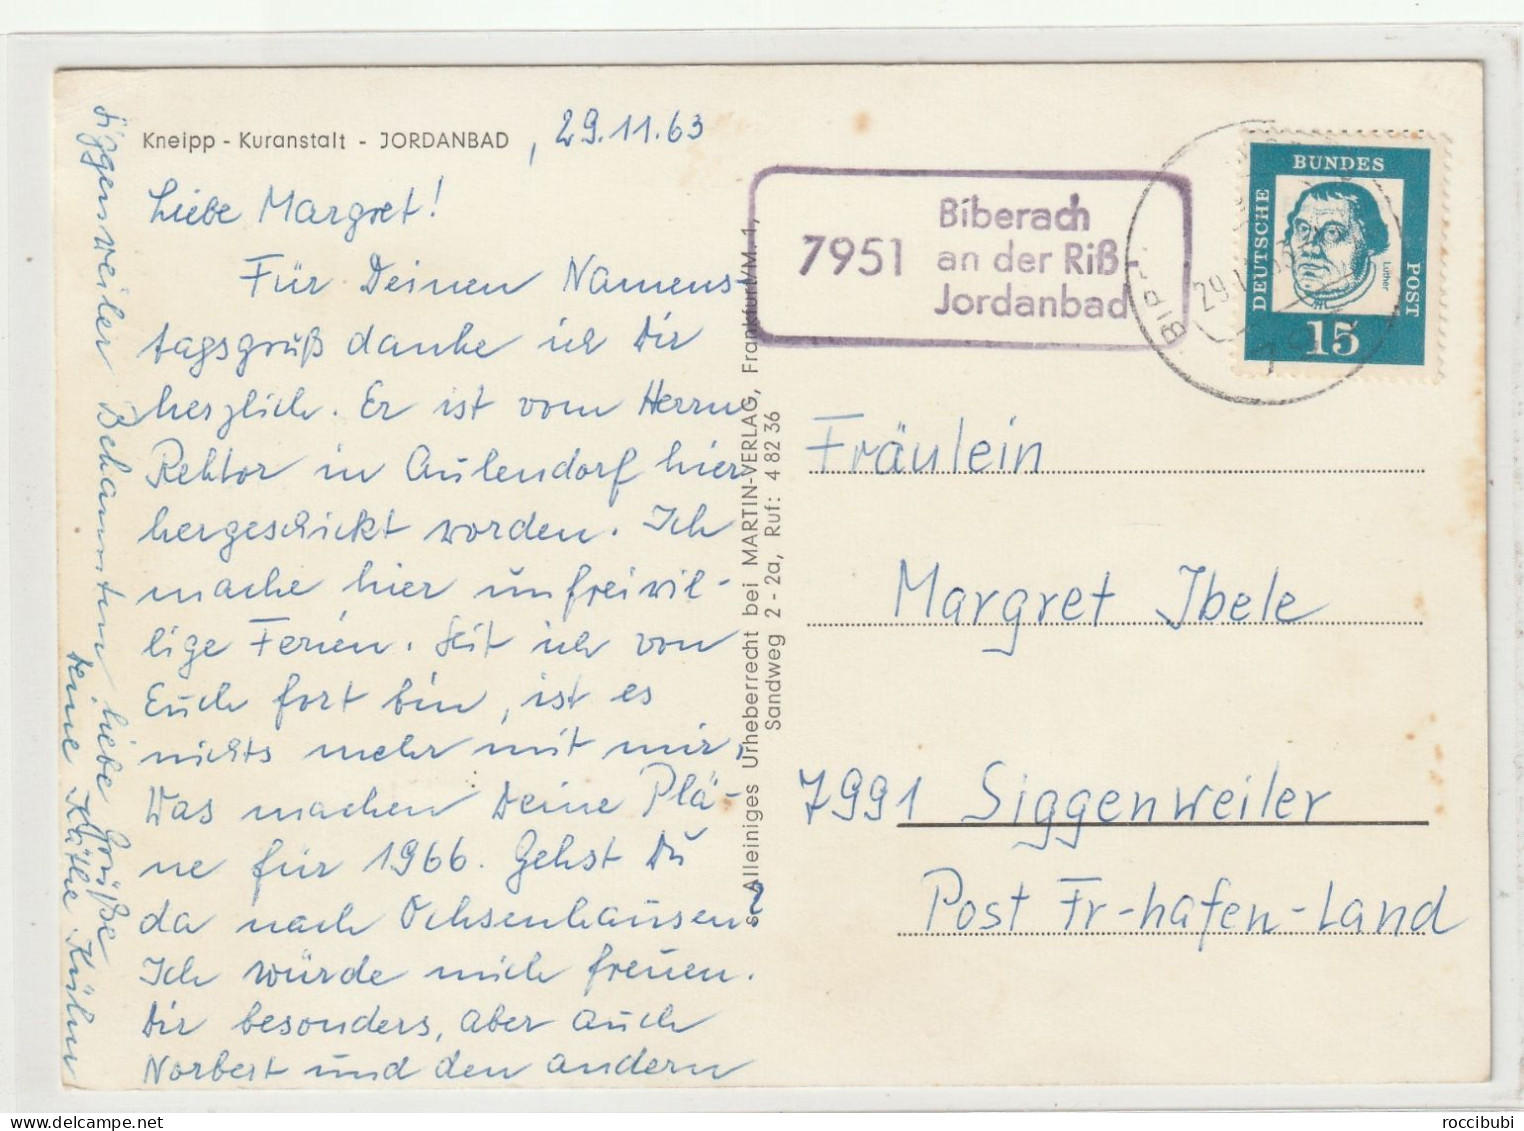 Kneipp - Kuranstalt - JORDANBAD , 29.11.63
Liebe Margret!
Für Deinen Namens-
tagsgruß danke ich Dir
herzlich. Er ist vom Herrn
Rektor in Aulendorf hier
hergeschickt worden. Ich
mache hier unfreiwil-
lige Ferien. Seit ich von
Euch fort bin, ist es
nichts mehr mit mir.
Was machen Deine Plä-
ne für 1966. Gehst Du
da nach Ochsenhausen?
Ich würde mich freuen.
Dir besonders, aber auch
Norbert und den andern
Siggenweiler Bekannten liebe Grüße
Deine Käthe
s. Alleiniges Urheberrecht bei MARTIN-VERLAG, Frankfurt/M. 1,
Sandweg 2 - 2a, Ruf: 4 82 36
7951 Biberach
an der Riß-
Jordanbad
DEUTSCHE
BUNDES
POST
Luther
15
Fräulein
Margret Ibele
7991 Siggenweiler
Post Fr-hafen-Land
roccibubi